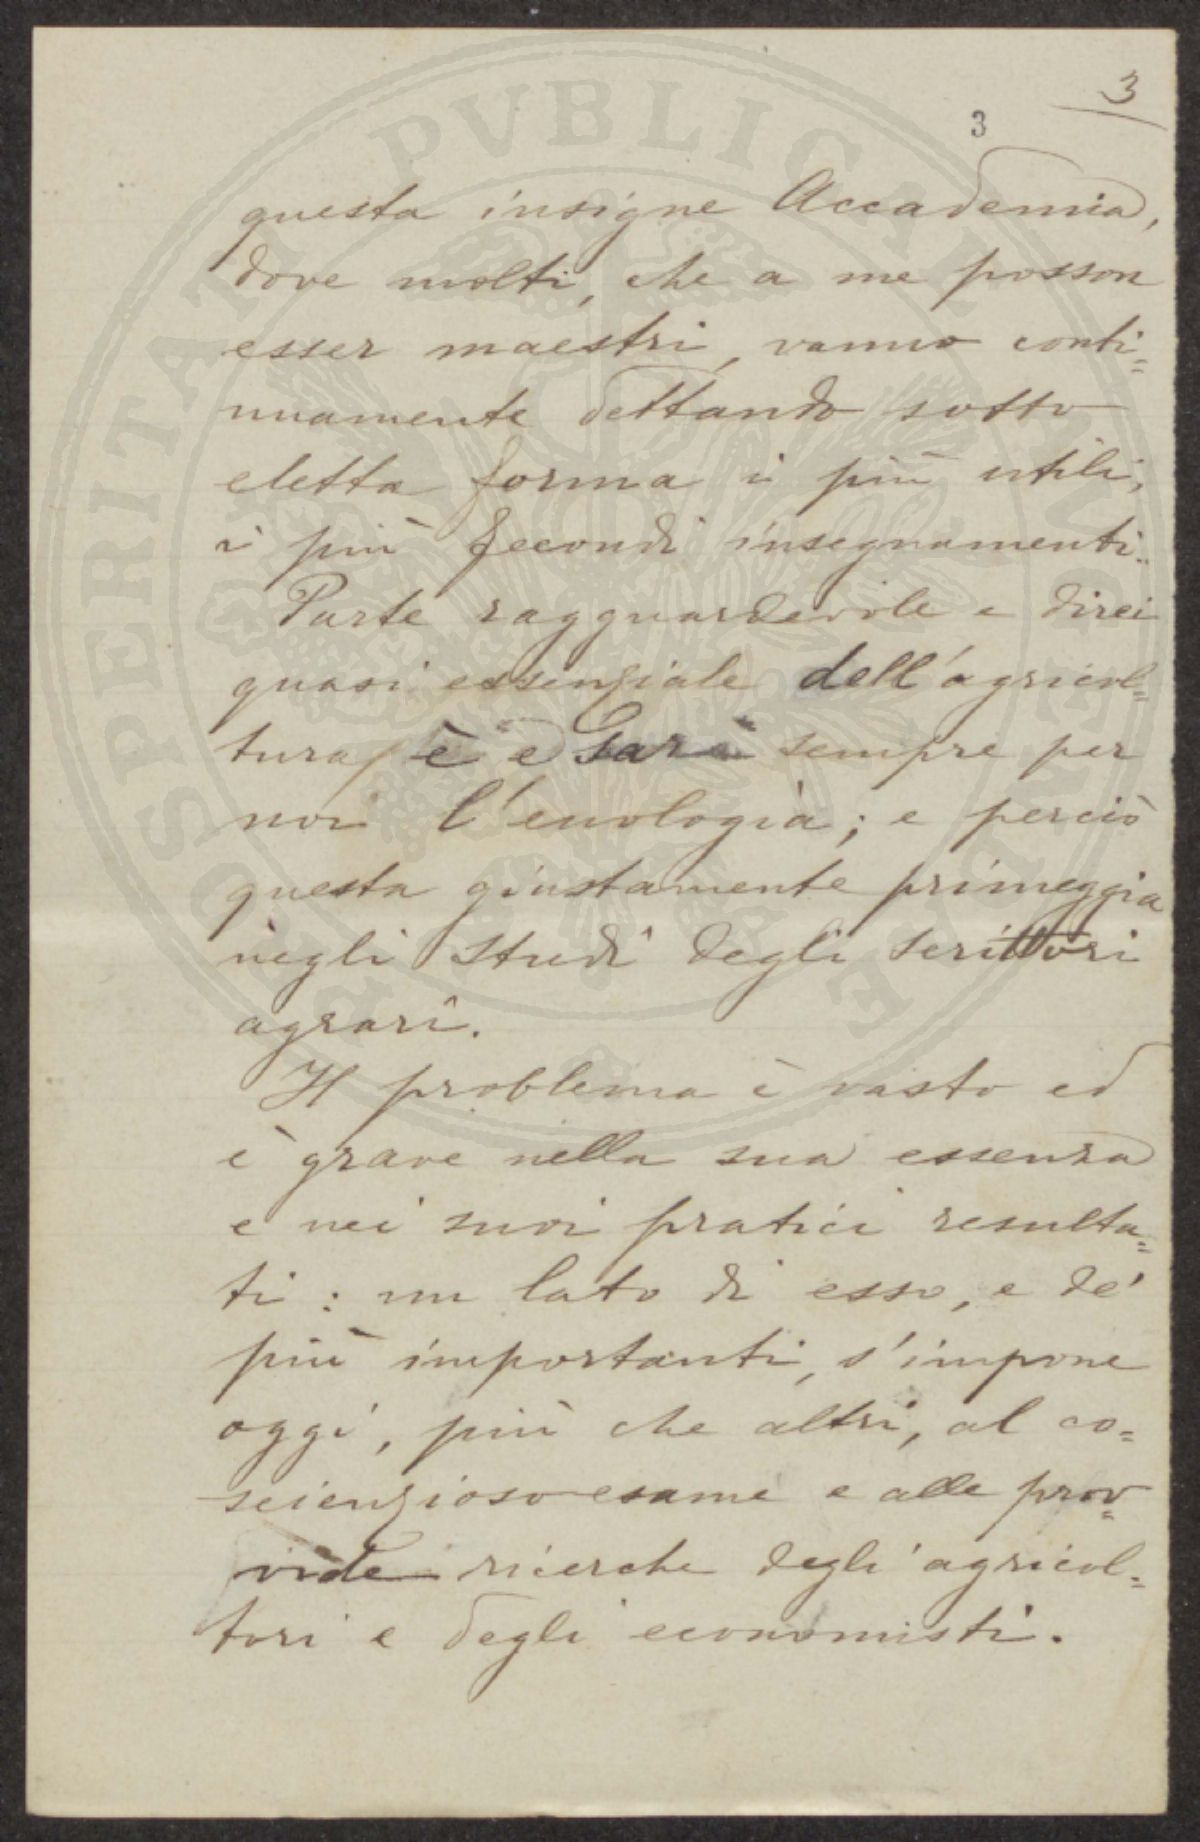 3
3
questa insigne Accademia,
dove molti, che a me posson
esser maestri, vanno conti=
nuamente dettando sotto
eletta forma i più utili,
i più fecondi insegnamenti.
Parte ragguardevole e direi
quasi essenziale dell'agricol=
tura, è e sarà sempre per
noi l'enologia; e perciò
questa giustamente primeggia
negli studî degli scrittori
agrarî.
Il problema è vasto ed
è grave nella sua essenza
e nei suoi pratici resulta=
ti: un lato di esso, e de'
più importanti, s'impone
oggi, più che altri, al co=
scienzioso esame e alle prov=
vide ricerche degli agricol=
tori e degli economisti.
PROSPERITATI PVBLICAE AVGENDAE